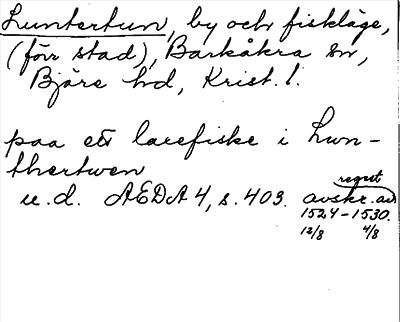 Luntertun, by och fiskläge,
(förr stad), Barkåkra sn,
Bjäre hd, Krist. l.
paa ett laxefiske i Lun-
thertwen
u.d. AEDA 4, s. 403. avskr. av regest
1524-1530.
12/8 4/8